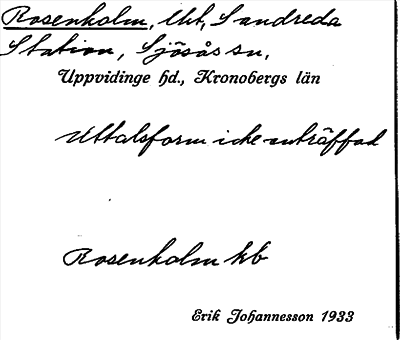 Rosenholm, Uht, Sandreda
Station, Sjösås sn,
Uppvidinge hd., Kronobergs län
Uttalsform icke anträffad
Rosenholm hb
Erik Johannesson 1933